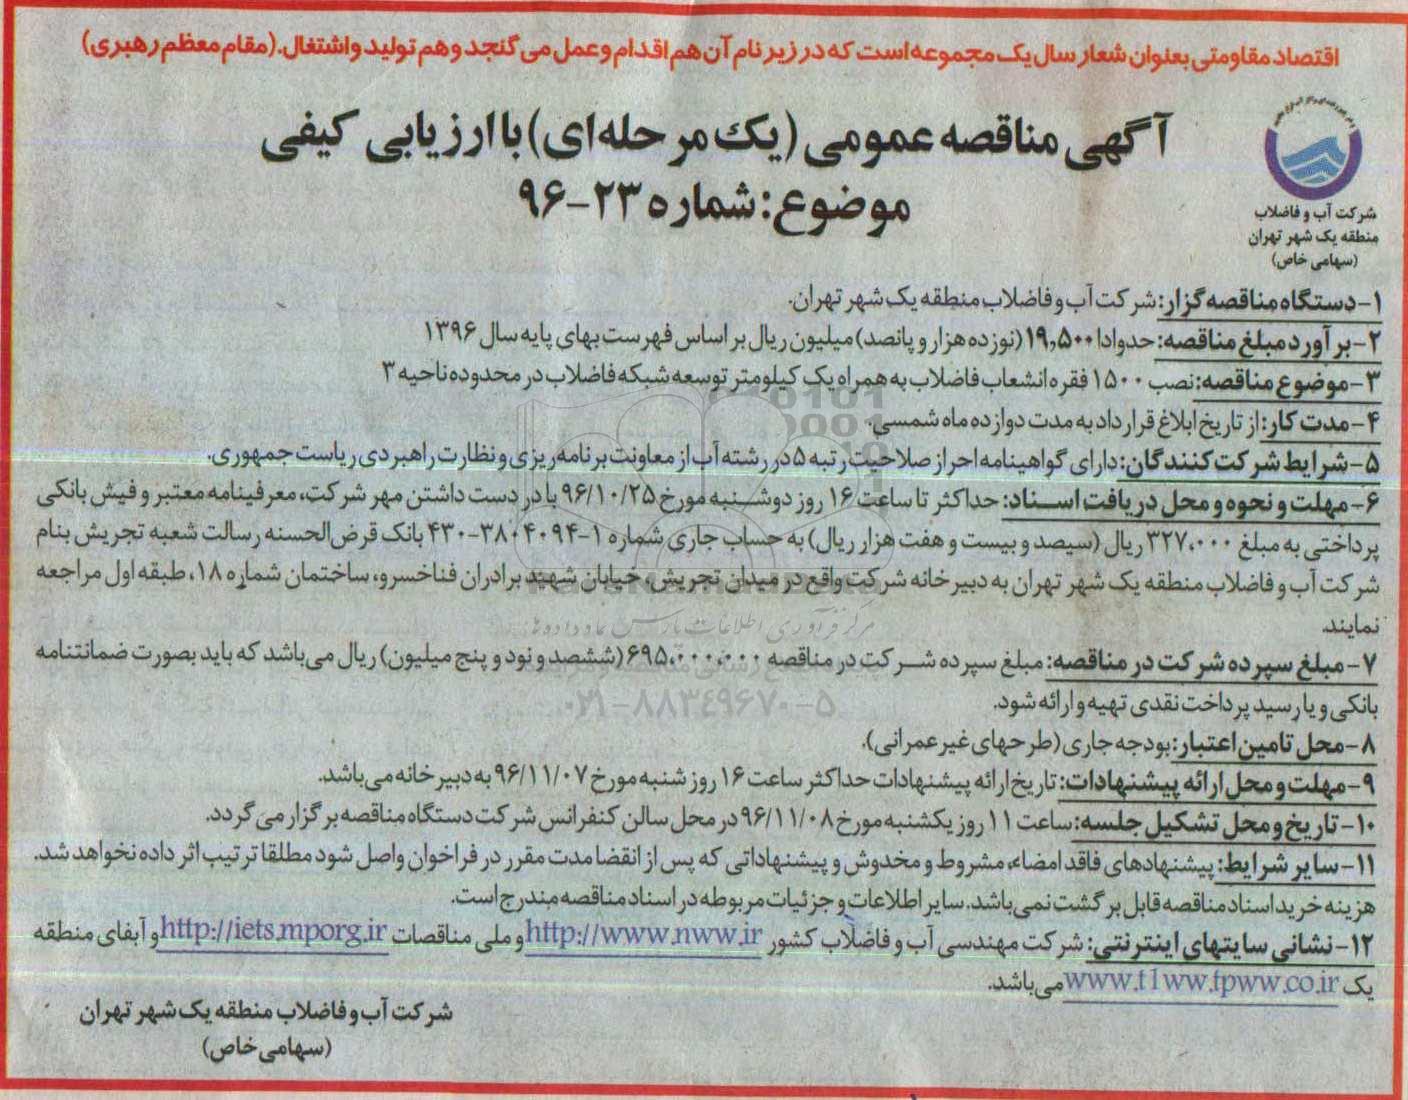 اقتصاد مقاومتی بعنوان شعار سال یک مجموعه است که در زیر نام آن هم اقدام و عمل می گنجد و هم تولید و اشتغال. (مقام معظم رهبری)
آگهی مناقصه عمومی (یک مرحله‌ای) با ارزیابی کیفی
موضوع: شماره ۲۳-۹۶
شرکت آب و فاضلاب
منطقه یک شهر تهران
(سهامی خاص)
۱- دستگاه مناقصه گزار: شرکت آب و فاضلاب منطقه یک شهر تهران.
۲- برآورد مبلغ مناقصه: حدوداا ۱۹,۵۰۰ (نوزده هزار و پانصد) میلیون ریال بر اساس فهرست بهای پایه سال ۱۳۹۶
۳- موضوع مناقصه: نصب ۱۵۰۰ فقره انشعاب فاضلاب به همراه یک کیلومتر توسعه شبکه فاضلاب در محدوده ناحیه ۳
۴- مدت کار: از تاریخ ابلاغ قرارداد به مدت دوازده ماه شمسی.
۵- شرایط شرکت کنندگان: دارای گواهینامه احراز صلاحیت رتبه ۵ در رشته آب از معاونت برنامه ریزی و نظارت راهبردی ریاست جمهوری.
۶- مهلت و نحوه و محل دریافت اسناد: حداکثر تا ساعت ۱۶ روز دوشنبه مورخ ۹۶/۱۰/۲۵ با در دست داشتن مهر شرکت، معرفینامه معتبر و فیش بانکی
پرداختی به مبلغ ۳۲۷،۰۰۰ ریال (سیصد و بیست و هفت هزار ریال) به حساب جاری شماره ۱-۳۸۰۴۰۹۴-۴۳۰ بانک قرض الحسنه رسالت شعبه تجریش بنام
شرکت آب و فاضلاب منطقه یک شهر تهران به دبیرخانه شرکت واقع در میدان تجریش، خیابان شهید برادران فناخسرو، ساختمان شماره ۱۸، طبقه اول مراجعه
نمایند.
مرکز فرآوری اطلاعات پارس نماد داده‌ها
۷- مبلغ سپرده شرکت در مناقصه: مبلغ سپرده شرکت در مناقصه ۶۹۵،۰۰۰،۰۰۰ (ششصد و نود و پنج میلیون) ریال می‌باشد که باید بصورت ضمانتنامه
بانکی و یا رسید پرداخت نقدی تهیه و ارائه شود.
۰۲۱-۸۸۳۴۹۶۷۰-۵
۸- محل تامین اعتبار: بودجه جاری (طرحهای غیر عمرانی).
۹- مهلت و محل ارائه پیشنهادات: تاریخ ارائه پیشنهادات حداکثر ساعت ۱۶ روز شنبه مورخ ۹۶/۱۱/۰۷ به دبیرخانه می‌باشد.
۱۰- تاریخ و محل تشکیل جلسه: ساعت ۱۱ روز یکشنبه مورخ ۹۶/۱۱/۰۸ در محل سالن کنفرانس شرکت دستگاه مناقصه برگزار می گردد.
۱۱- سایر شرایط: پیشنهادهای فاقد امضاء، مشروط و مخدوش و پیشنهاداتی که پس از انقضا مدت مقرر در فراخوان واصل شود مطلقا ترتیب اثر داده نخواهد شد.
هزینه خرید اسناد مناقصه قابل برگشت نمی‌باشد. سایر اطلاعات و جزئیات مربوطه در اسناد مناقصه مندرج است.
۱۲- نشانی سایتهای اینترنتی: شرکت مهندسی آب و فاضلاب کشور http://www.nww.ir و ملی مناقصات http://iets.mporg.ir و آبفای منطقه
یک www.t1ww.tpww.co.ir می‌باشد.
شرکت آب و فاضلاب منطقه یک شهر تهران
(سهامی خاص)